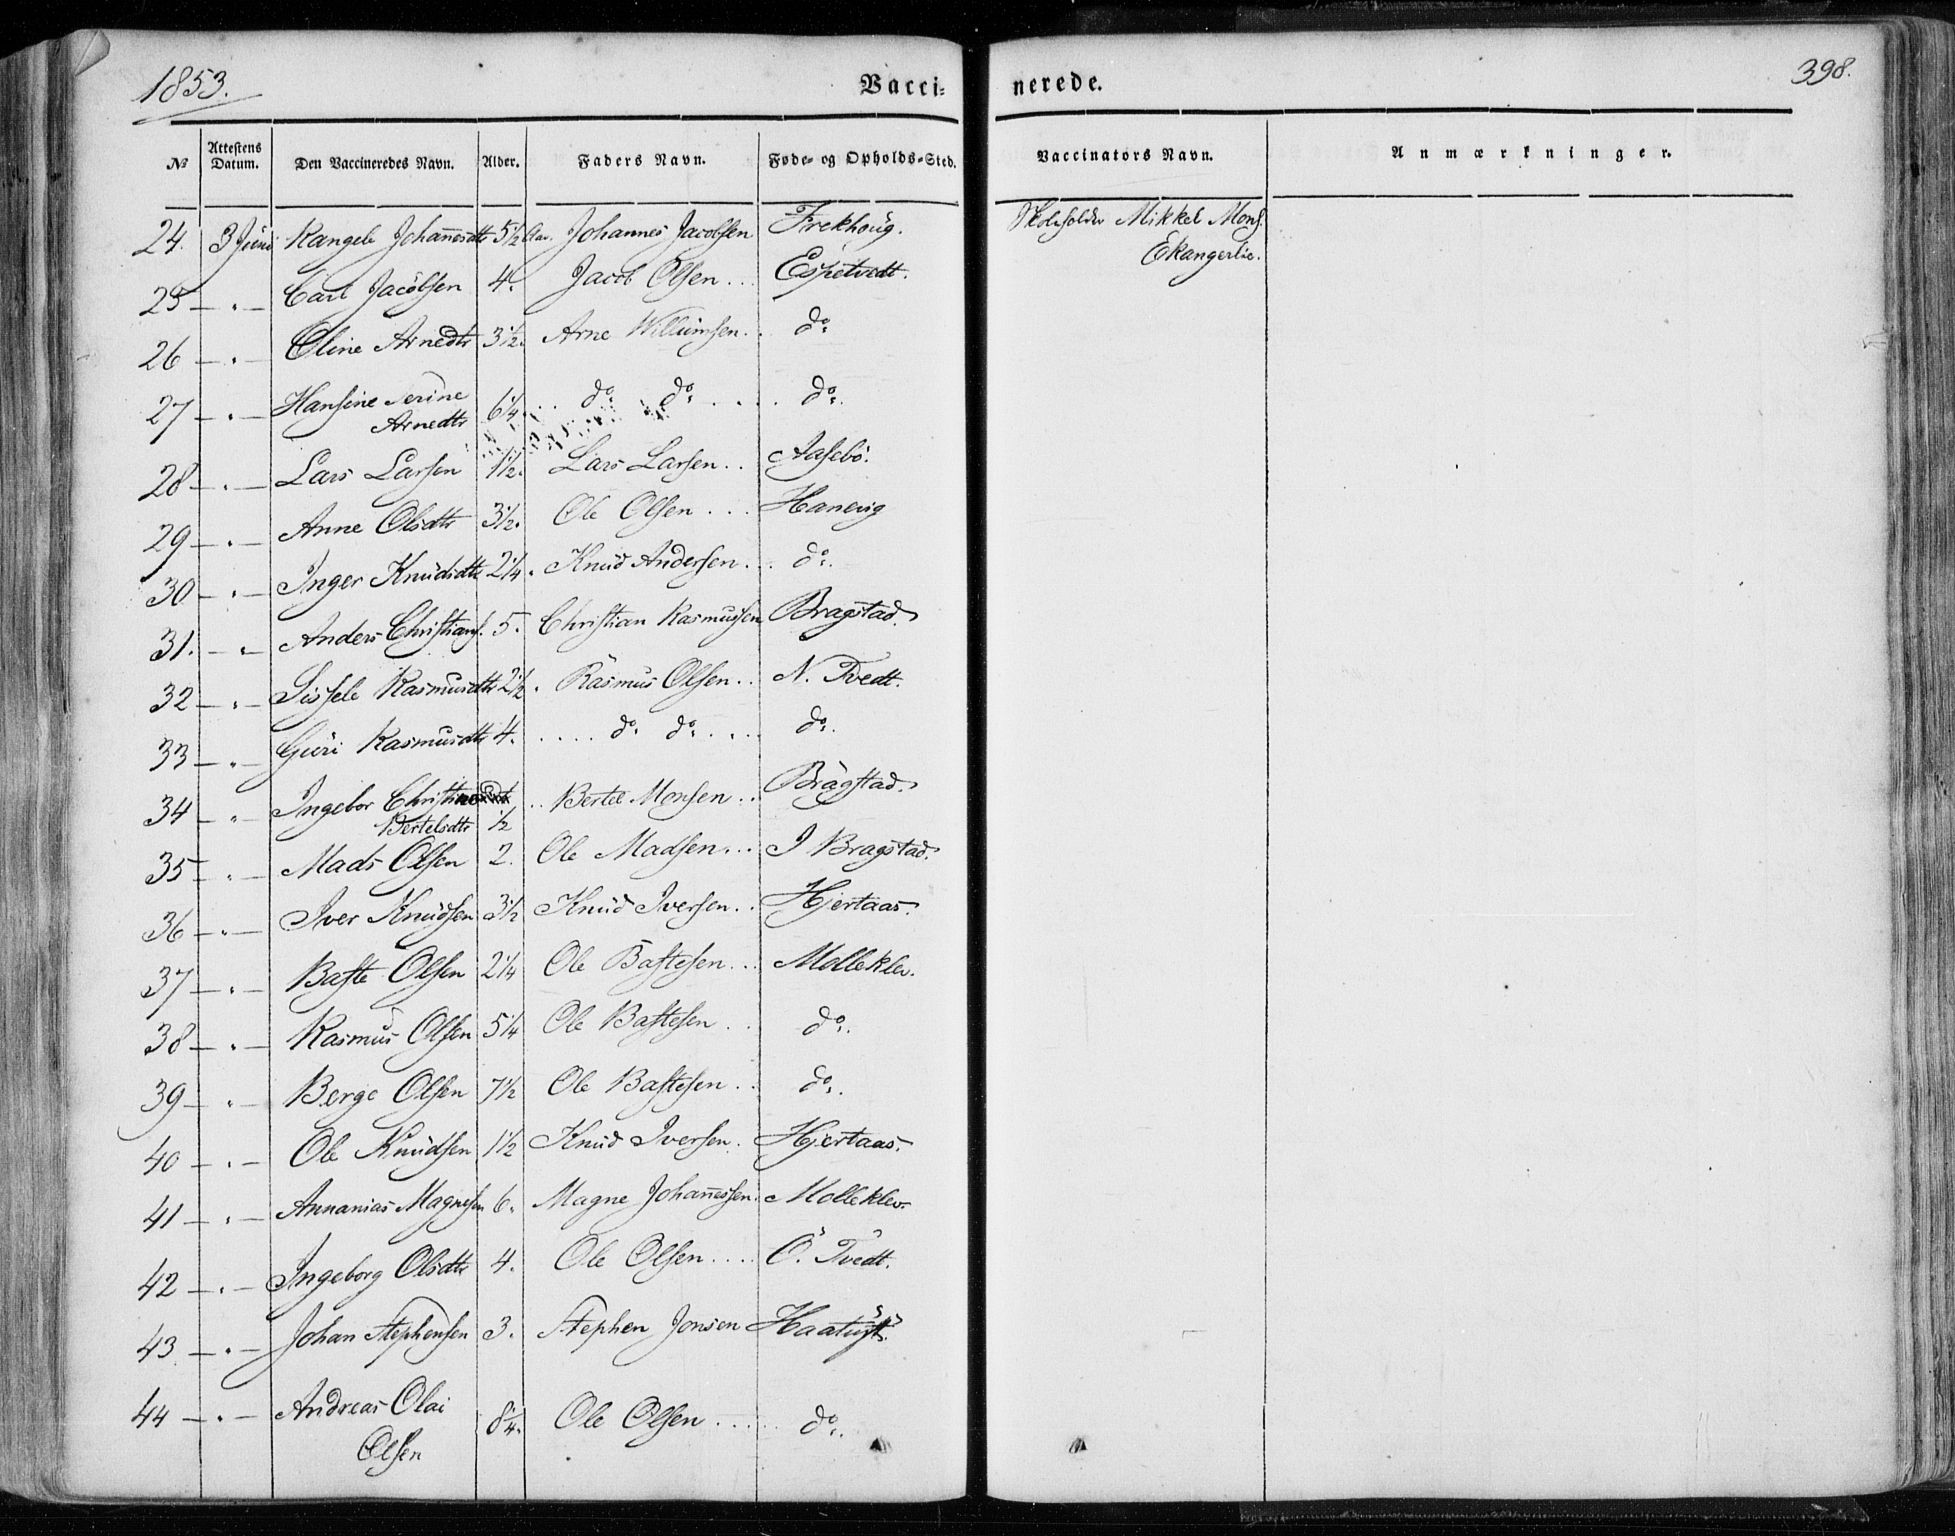 1853.
Vacci-
nerede.
398.
No
Attestens Datum.
Den Vaccineredes Navn.
Alder.
Faders Navn.
Føde- og Opholds-Sted.
Vaccinators Navn.
Anmærkninger.
24. 3 Juni Rangele Johannesdtr 5 1/2 Aar. Johannes Jacobsen Frekhoug. Skoleholder Mikkel Mons.
Ekangerlie.
25 — " — Carl Jacobsen 4. Jacob Olsen .. Espetvedt.
26 — " — Oline Arnedtr 3 1/2. Arne Willumsen . do
27 — " — Hansine Serine 6 1/4 .. do do .... do.
Arnedtr
28 — " — Lars Larsen 1 1/2. Lars Larsen .. Aasebö.
29 — " — Anne Olsdtr 3 1/2. Ole Olsen ... Hanevig
30 — " — Inger Knudsdtr 2 1/4. Knud Andersen .. do.
31. — " Anders Christians. 5. Christian Rasmussen Bragstad.
32 — " — Sissele Rasmusdtr 2 1/2. Rasmus Olsen .. N. Tvedt.
33 — " — Guri Rasmusdtr 4. .... do do .... do.
34 — " Ingebor Christine .. Bertel Monsen .. Bragstad.
Bertelsdtr 1/2
35 — " — Mads Olsen 2. Ole Madsen ... I Bragstad.
36 — " — Iver Knudsen 3 1/2 Knud Iversen .. Hjertaas.
37 — " — Baste Olsen 2 1/4 Ole Bastesen ... Molleklev.
38 — " — Rasmus Olsen 5 1/4 Ole Bastesen .. do.
39 — " Berge Olsen 7 1/2 Ole Bastesen .. do.
40 — " — Ole Knudsen 1 1/2 Knud Iversen . Hjertaas.
41 — " — Annanias Magnesen 6. Magne Johannessen. Molleklev.
42 — " — Ingeborg Olsdtr 4. Ole Olsen .... Ö. Tvedt.
43 — " — Johan Stephensen 3. Stephen Jonsen
44 — " — Andreas Olai 8 1/4. Ole Olsen .... do.
Olsen